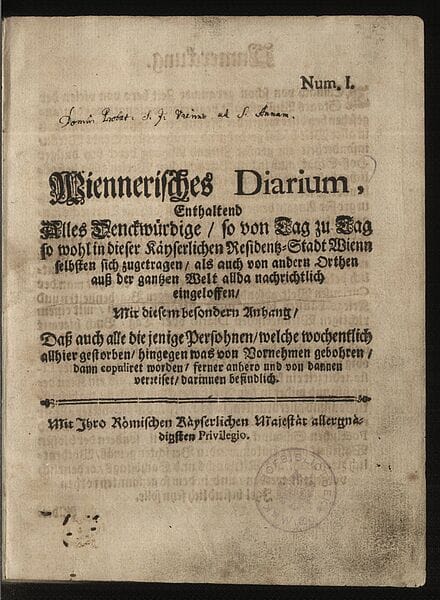 Num. I.
Domûs Probat: S. J. Viennæ ad S. Annam.
Wiennerisches Diarium,
Enthaltend
Alles Denckwürdige / so von Tag zu Tag
so wohl in dieser Käyserlichen Residentz-Stadt Wienn
selbsten sich zugetragen / als auch von andern Orthen
auß der gantzen Welt allda nachrichtlich
eingeloffen /
Mit diesem besondern Anhang /
Daß auch alle die jenige Persohnen / welche wochentlich
allhier gestorben / hingegen was von Vornehmen gebohren /
dann copuliret worden / ferner anhero und von dannen
verreiset / darinnen befindlich.
Mit Ihro Römischen Käyserlichen Majestät allergnä-
digsten Privilegio.